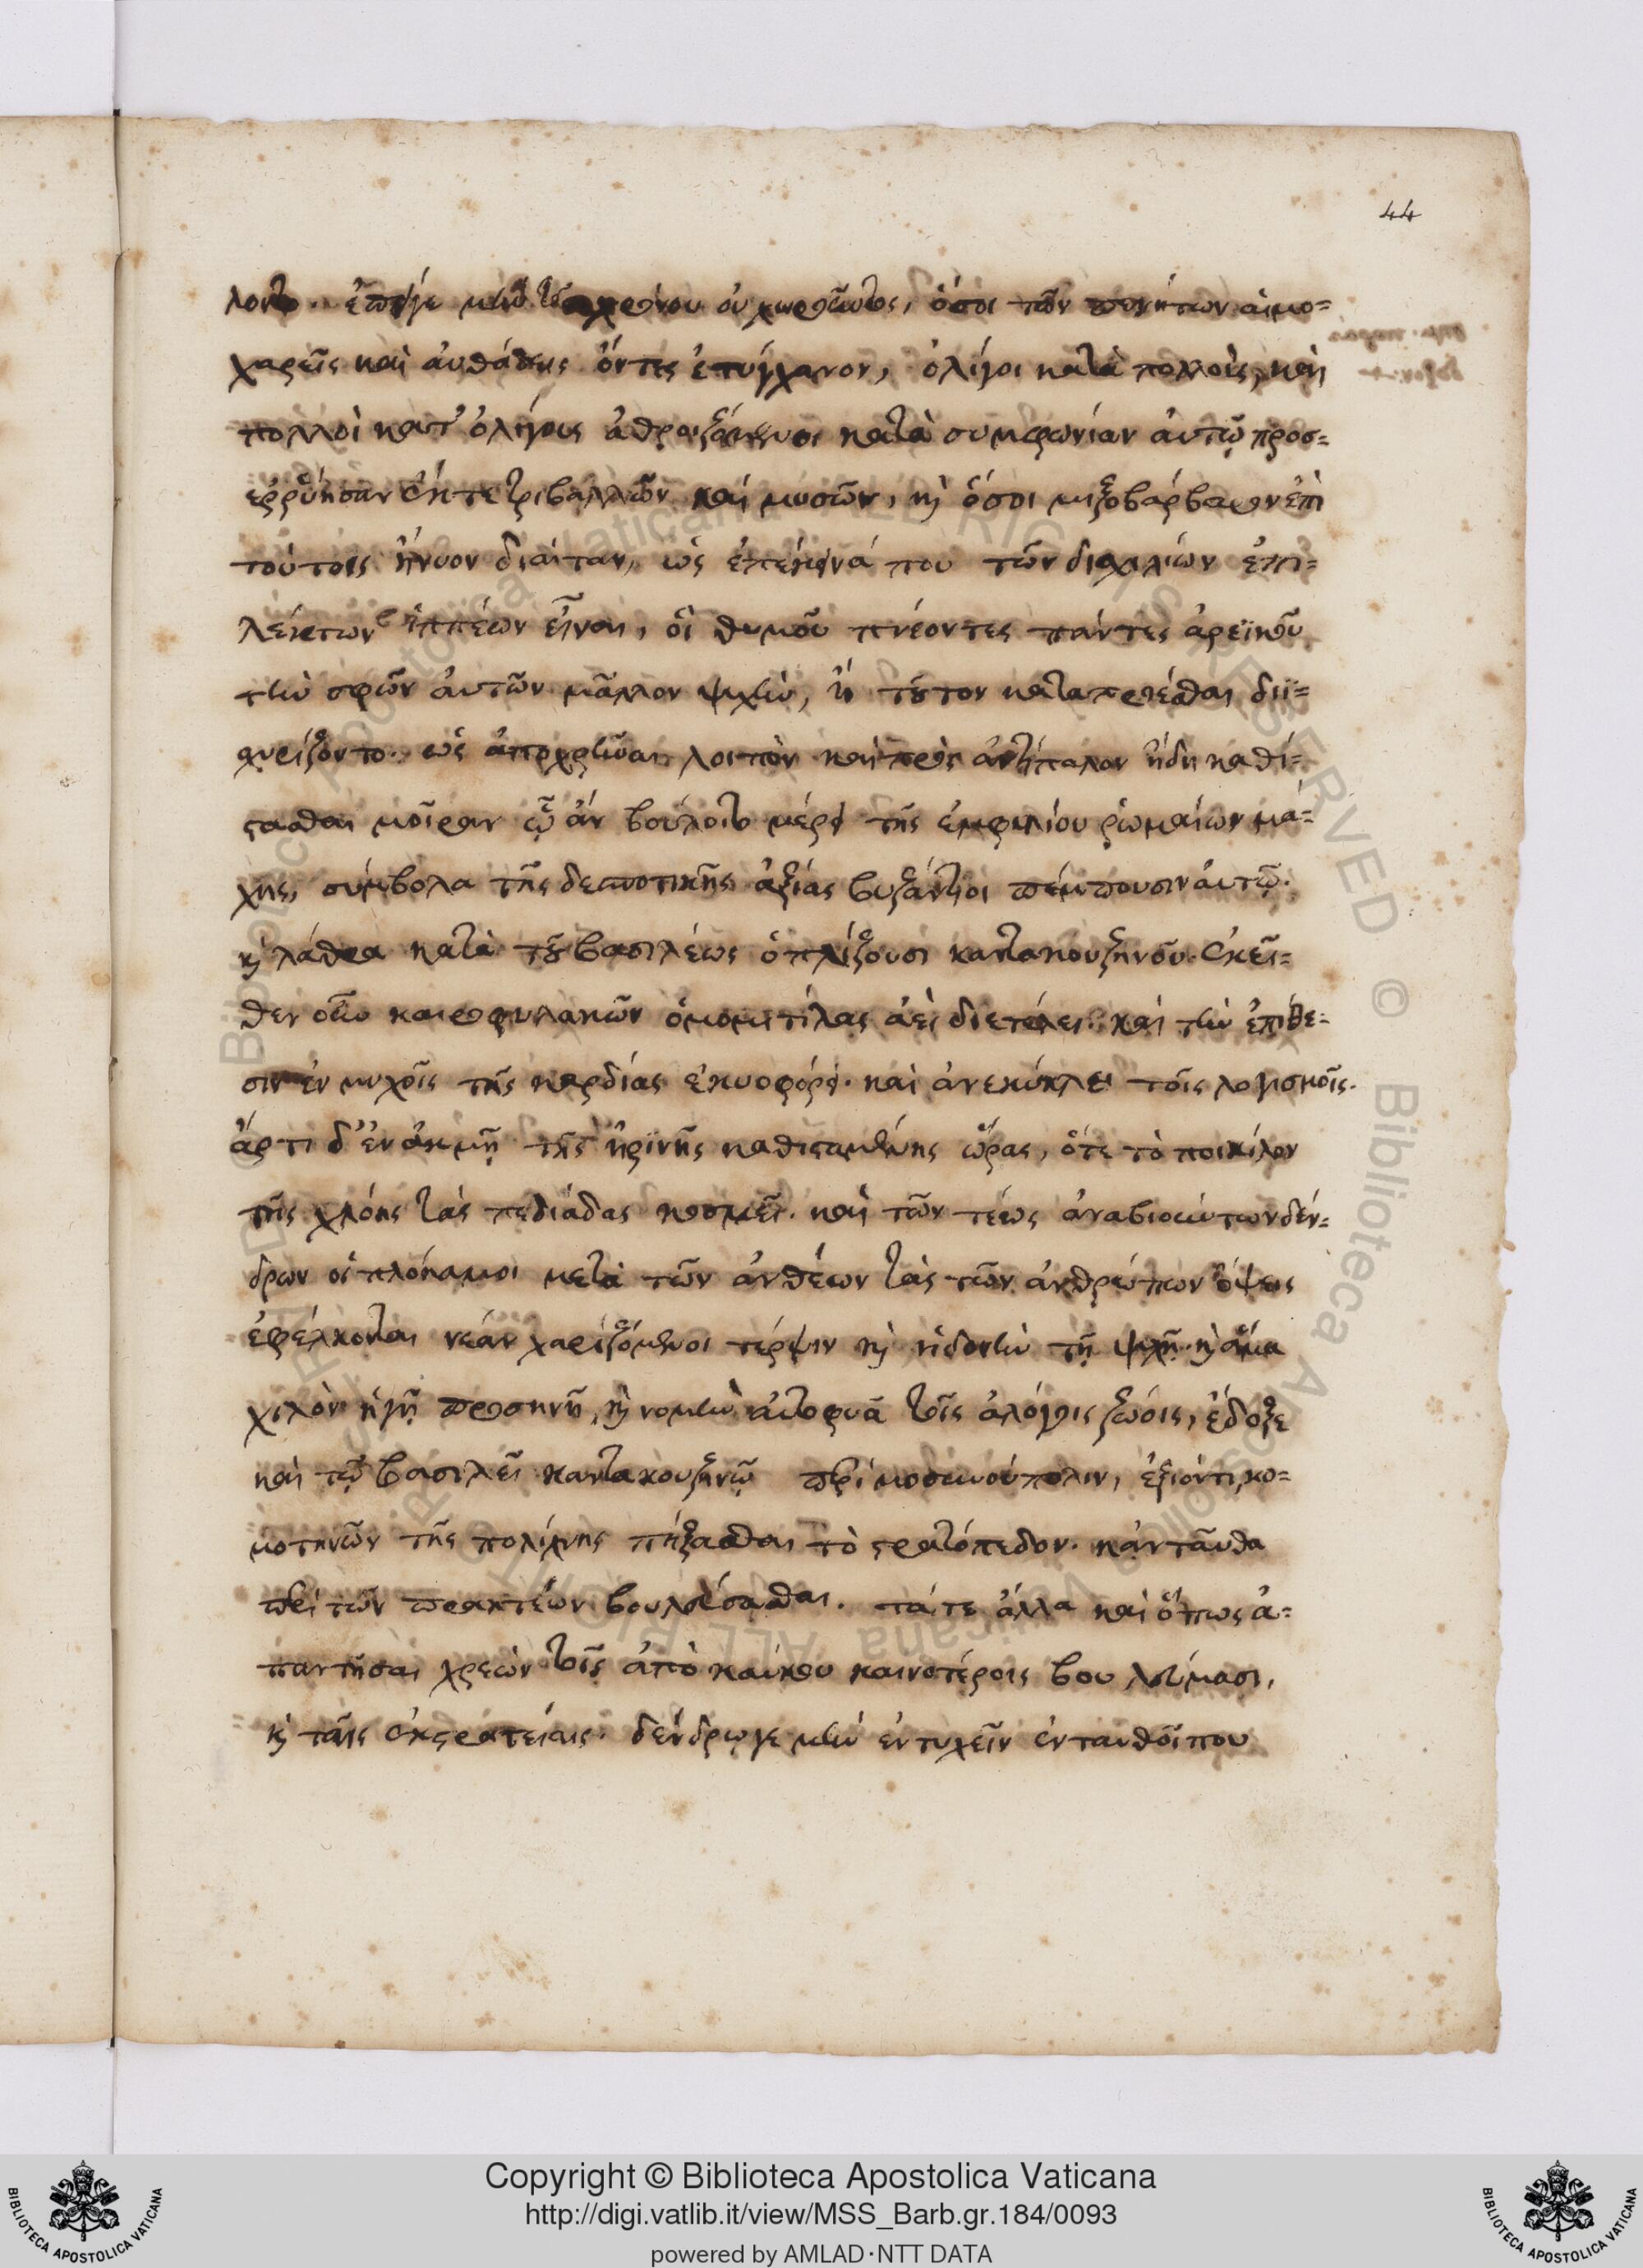 44
λοντο. ἔπειγε μὲν τοῦ χρόνου οὐ χωροῦντος, ὅσοι τῶν πενήτων αἱμο=
χαρεῖς καὶ αὐθάδεις ὄντες ἐτύγχανον, ὀλίγοι κατὰ πολλοὺς, καὶ
πολλοὶ κατ' ὀλίγους ἀθροιζόμενοι κατὰ συμφωνίαν αὐτῷ προσ=
ερρύησαν ἔκ τε τριβαλλῶν καὶ μυσῶν, κỳ ὅσοι μιξοβάρβαρον ἐπὶ
τούτοις ἤνυον δίαιταν, ὡς ἐπέκεινά που τῶν δισχιλίων ἐπι=
λέκτων ἱππέων εἶναι, οἳ θυμοῦ πνέοντες πάντες ἀρεϊκοῦ
τὴν σφῶν αὐτῶν μᾶλλον ψυχὴν, ἢ τοῦτον καταπροέσθαι διϊ=
σχυρίζοντο. ὡς ἀποχρῶσαν λοιπὸν καὶ πρὸς ἀντίπαλον ἤδη καθί=
στασθαι μοῖραν ᾧ ἂν βούλοιτο μέρει τῆς ἐμφυλίου ῥωμαίων μά=
χης, σύμβολα τῆς δεσποτικῆς ἀξίας βυζάντιοι πέμπουσιν αὐτῷ.
καὶ λάθρα κατὰ τοῦ βασιλέως ὁπλίζουσι καντακουζηνοῦ. ἐκεῖ=
θεν οὖν καιροφυλακῶν ὁ μομιτίλας ἀεὶ διετέλει. καὶ τὴν ἐπίθε=
σιν ἐν μυχοῖς τῆς καρδίας ἐκυοφόρει. καὶ ἀνεκύκλει τοῖς λογισμοῖς.
ἄρτι δ' ἐν ἀκμῇ τῆς ἠρινῆς καθισταμένης ὥρας, ὅτε τὸ ποικίλον
τῆς χλόης τὰς πεδιάδας κοσμεῖ. καὶ τῶν τέως ἀναβιούντων δέν=
δρων οἱ πλόκαμοι μετὰ τῶν ἀνθέων τὰς τῶν ἀνθρώπων ὄψεις
ἐφέλκονται νέαν χαριζόμενοι τέρψιν καὶ ἡδονὴν τῇ ψυχῇ. καὶ ἅμα
χιλὸν ἡ γῆ προσηνῆ, καὶ νομὴν αὐτοφυᾶ τοῖς ἀλόγοις ζώοις, ἔδοξε
καὶ τῷ βασιλεῖ καντακουζηνῷ περὶ μοσυνούπολιν, ἐξιόντι κο=
μοτηνῶν τῆς πολίχνης πήξασθαι τὸ στρατόπεδον. κἀνταῦθα
περὶ τῶν πρακτέων βουλεύσασθαι. τά τε ἄλλα καὶ ὅπως ἀ=
παντῆσαι χρεὼν τοῖς ἀπὸ καύκου καινοτέροις βουλεύμασι,
καὶ ταῖς ἐκστρατείαις. δένδρῳ γε μὴν ἐντυχεῖν ἐνταυθοῖ που
Copyright © Biblioteca Apostolica Vaticana
http://digi.vatlib.it/view/MSS_Barb.gr.184/0093
powered by AMLAD·NTT DATA